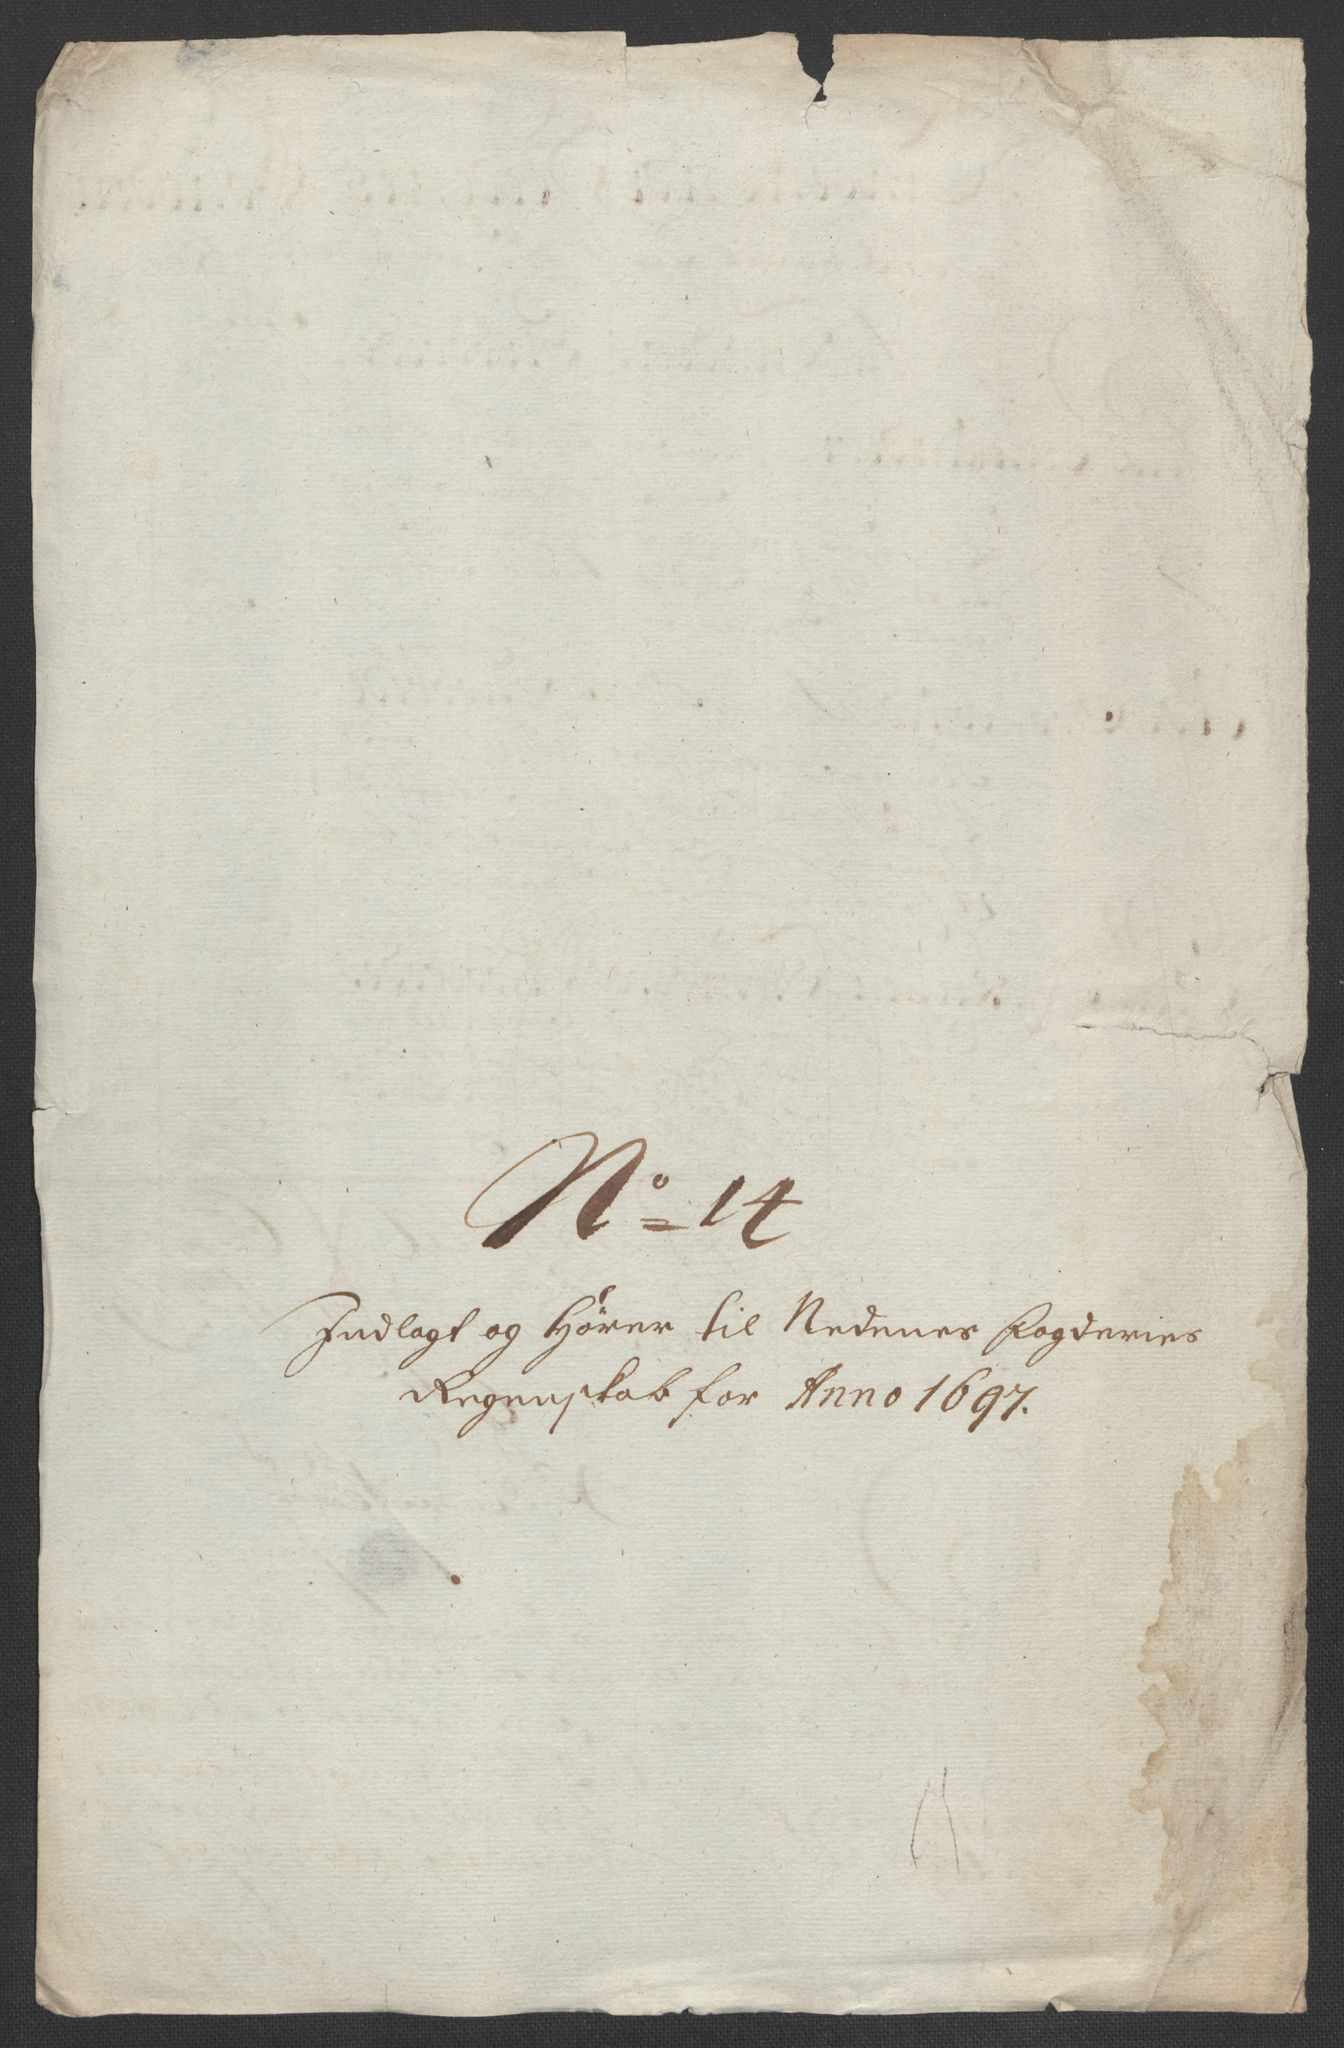 No = 14
Indlagt og Hörer til Nedenes Fogderies
Regenskab for Anno 1697.